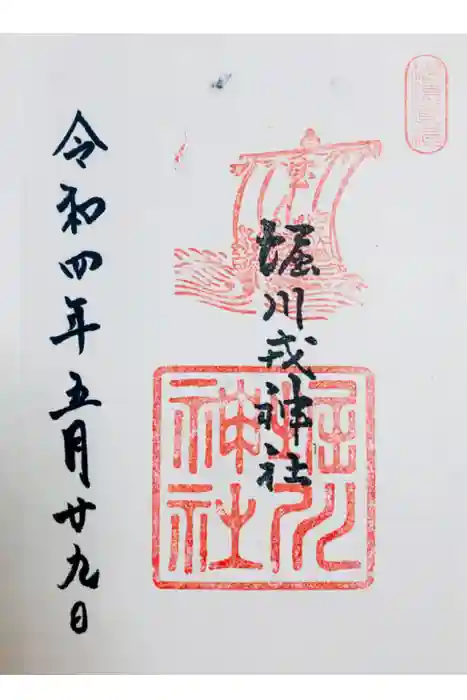 堀川戎神社
令和四年五月廿九日
堀川
神社